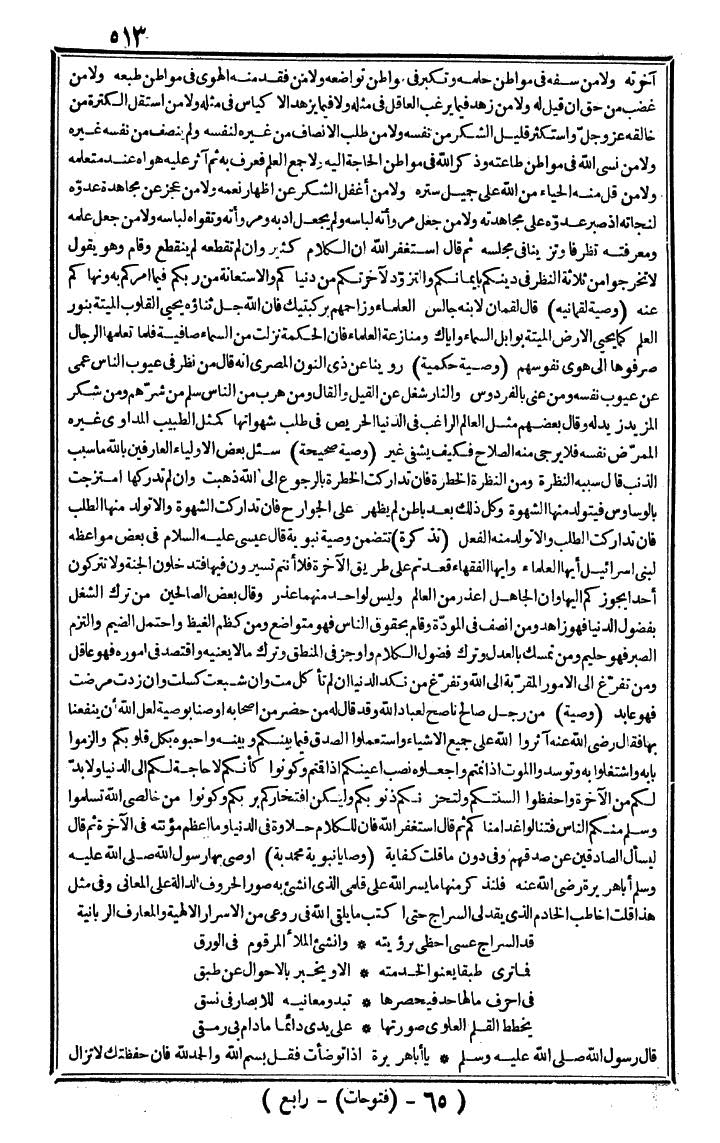 ٥١٣
آخرته ولا من سفه فى مواطن حلمه وتكبر فى مواطن تواضعه ولا من فقد منه الهوى فى مواطن طبعه ولا من
غضب من حق ان قيل له ولا من زهد فيما يرغب العاقل فى مثله ولا فيما يزهد الا كياس فى مثله ولا من استقل الكثرة من
خالقه عز وجل واستكثر قليل الشكر من نفسه ولا من طلب الانصاف من غيره لنفسه ولم ينصف من نفسه غيره
ولا من نسى الله فى مواطن طاعته وذكر الله فى مواطن الحاجة اليه ولا جمع العلم فعرف به ثم آثر عليه هواه عند متعلمه
ولا من قل منه الحياء من الله على جميل ستره ولا من أغفل الشكر عن اظهار نعمه ولا من عجز عن مجاهدة عدوّه
لنجاته اذ صبر عدوّه على مجاهدته ولا من جعل مروأته لباسه ولم يجعل ادبه ومروأته وتقواه لباسه ولا من جعل علمه
ومعرفته تظرفا وتزينا فى مجلسه ثم قال استغفر الله ان الكلام كثير وان لم تقطعه لم ينقطع وقام وهو يقول
لا تخرجوا من ثلاثة النظر فى دينكم بايمانكم والتزوّد لآخرتكم من دنياكم والاستعانة من ربكم فيما امركم به ونهاكم
عنه (وصية لقمانيه) قال لقمان لابنه جالس العلماء وزاحمهم بركبتيك فان الله جل ثناؤه يحيى القلوب الميتة بنور
العلم كما يحيى الارض الميتة بوابل السماء واياك ومنازعة العلماء فان الحكمة نزلت من السماء صافية فلما تعلمها الرجال
صرفوها الى هوى نفوسهم (وصية حكمية) روينا عن ذى النون المصرى انه قال من نظر فى عيوب الناس عمى
عن عيوب نفسه ومن عنى بالفردوس والنار شغل عن القيل والقال ومن هرب من الناس سلم من شرّهم ومن شكر
المزيد زيد له وقال بعضهم مثل العالم الراغب فى الدنيا الحريص فى طلب شهواتها كمثل الطبيب المداوى غيره
الممرّض نفسه فلا يرجى منه الصلاح فكيف يشفى غير (وصية صحيحة) سئل بعض الاولياء العارفين بالله ما سبب
الذنب قال سببه النظرة ومن النظرة الخطرة فان تداركت الخطرة بالرجوع الى الله ذهبت وان لم تدركها امتزجت
بالوساوس فيتولد منها الشهوة وكل ذلك بعد باطن لم يظهر على الجوارح فان تداركت الشهوة والا تولد منها الطلب
فان تداركت الطلب والا تولد منه الفعل (تذكرة) تتضمن وصية نبوية قال عيسى عليه السلام فى بعض مواعظه
لبنى اسرائيل أيها العلماء وايها الفقهاء قعدتم على طريق الآخرة فلا أنتم تسيرون فيها فتدخلون الجنة ولا تتركون
أحدا يجوزكم اليها وان الجاهل اعذر من العالم وليس لواحد منهما عذر وقال بعض الصالحين من ترك الشغل
بفضول الدنيا فهو زاهد ومن انصف فى المودّة وقام بحقوق الناس فهو متواضع ومن كظم الغيظ واحتمل الضيم والتزم
الصبر فهو حليم ومن تمسك بالعدل وترك فضول الكلام واوجز فى المنطق وترك ما لا يعنيه واقتصد فى اموره فهو عاقل
ومن تفرّغ الى الامور المقرّبة الى الله وتفرّغ من نكد الدنيا ان لم تأكل مت وان شبعت كسلت وان زدت مرضت
فهو عابد (وصية) من رجل صالح ناصح لعباد الله وقد قال له من حضر من اصحابه اوصنا بوصية لعل الله أن ينفعنا
بها فقال رضى الله عنه آثروا الله على جميع الاشياء واستعملوا الصدق فيما بينكم وبينه واحبوه بكل قلوبكم والزموا
بابه واشتغلوا به وتوسدوا الموت اذا نمتم واجعلوه نصب اعينكم اذا قتم وكونوا كأنكم لا حاجة لكم الى الدنيا ولا بدّ
لكم من الآخرة واحفظوا السنتكم ولتحزنكم ذنوبكم وليكن افتخاركم بربكم وكونوا من خالصى الله تسلموا
وسلم منكم الناس فتنالوا غدا منا كم ثم قال استغفر الله فان للكلام حلاوة فى الدنيا وما اعظم مؤنته فى الآخرة ثم قال
ليسأل الصادقين عن صدقهم وفى دون ماقلت كفاية (وصايا نبوية محمدية) اوصى بها رسول الله صلى الله عليه
وسلم أباهريرة رضى الله عنه فلنذكر منها ما يسر الله على قلمى الذى انشئ به صور الحروف الدالة على المعانى وفى مثل
هذا قلت اخاطب الخادم الذى يقد لى السراج حتى اكتب ما يلقى الله فى روعى من الاسرار الالهية والمعارف الربانية
قد السراج عسى احظى برؤيته * وانشئ الملأ المرقوم فى الورق
فما ترى طبقا يعنو لخدمته * الا ويخبر بالاحوال عن طبق
فى احرف مالها حد فيحصرها * تبدو معانيه للابصار فى نسق
يخطط القلم العلوى صورتها * على يدى دائما مادام بى رمقى
قال رسول الله صلى الله عليه وسلم * يا أباهريرة اذا توضأت فقل بسم الله والحمد لله فان حفظتك لا تزال
( ٦٥ - (فتوحات) - رابع )